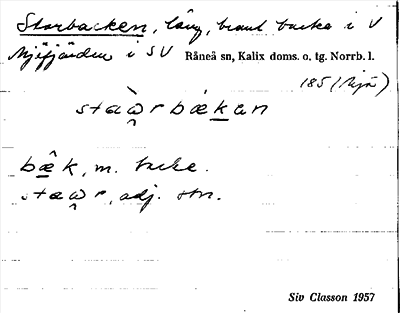 Storbacken, lång, brant backe i V
Mjöfjärden i SV Råneå sn, Kalix doms. o. tg. Norrb. l.
185 (Mjö)
staẁ̯rbækan
bæ̂k, m. backe.
staw̯r, adj. stor.
Siv Classon 1957